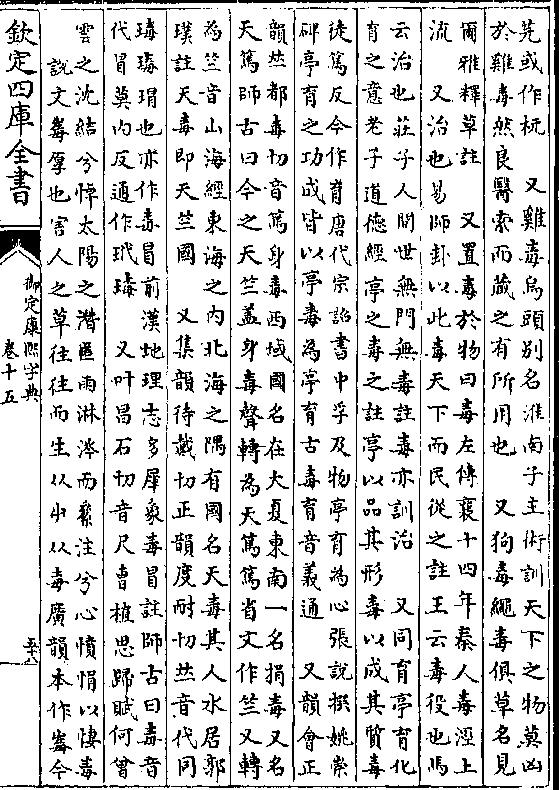 芫或作杬　又雞毒烏頭别名淮南子主術訓天下之物莫凶
於雞毒然良醫橐而藏之有所用也　又狗毒繩毒俱草名見
爾雅釋草註　又置毒於物曰毒左傳襄十四年秦人毒涇上
流　又治也易師卦以此毒天下而民從之註王云毒役也馬
云治也莊子人間世無門無毒註毒亦訓治　又同育亭育化
育之意老子道德經亭之毒之註亭以品其形毒以成其質毒
徒篤反今作育唐代宗詔書中孚及物亭育為心張說撰姚崇
碑亭育之功成皆以亭毒為亭育古毒育音義通　又韻會正
韻𠀤都毒切音篤身毒西域國名在大夏東南一名捐毒又名
天篤師古曰今之天竺蓋身毒聲轉為天篤篤省文作竺又轉
為竺音山海經東海之内北海之隅有國名天毒其人水居郭
璞註天毒即天竺國　又集韻待戴切正韻度耐切𠀤音代同
瑇瑇瑁也亦作毒冒前漢地理志多犀象毒冒註師古曰毒音
代冒莫内反通作玳瑇　又叶昌石切音尺曹植思歸賦何曾
雲之沈結兮悼太陽之潛匿雨淋涔而纍注兮心憤悁以悽毒
　說文毒厚也害人之草往往而生从屮从毒廣韻本作毒今
欽定四庫全書
御定康熙字典
卷十五
五十八